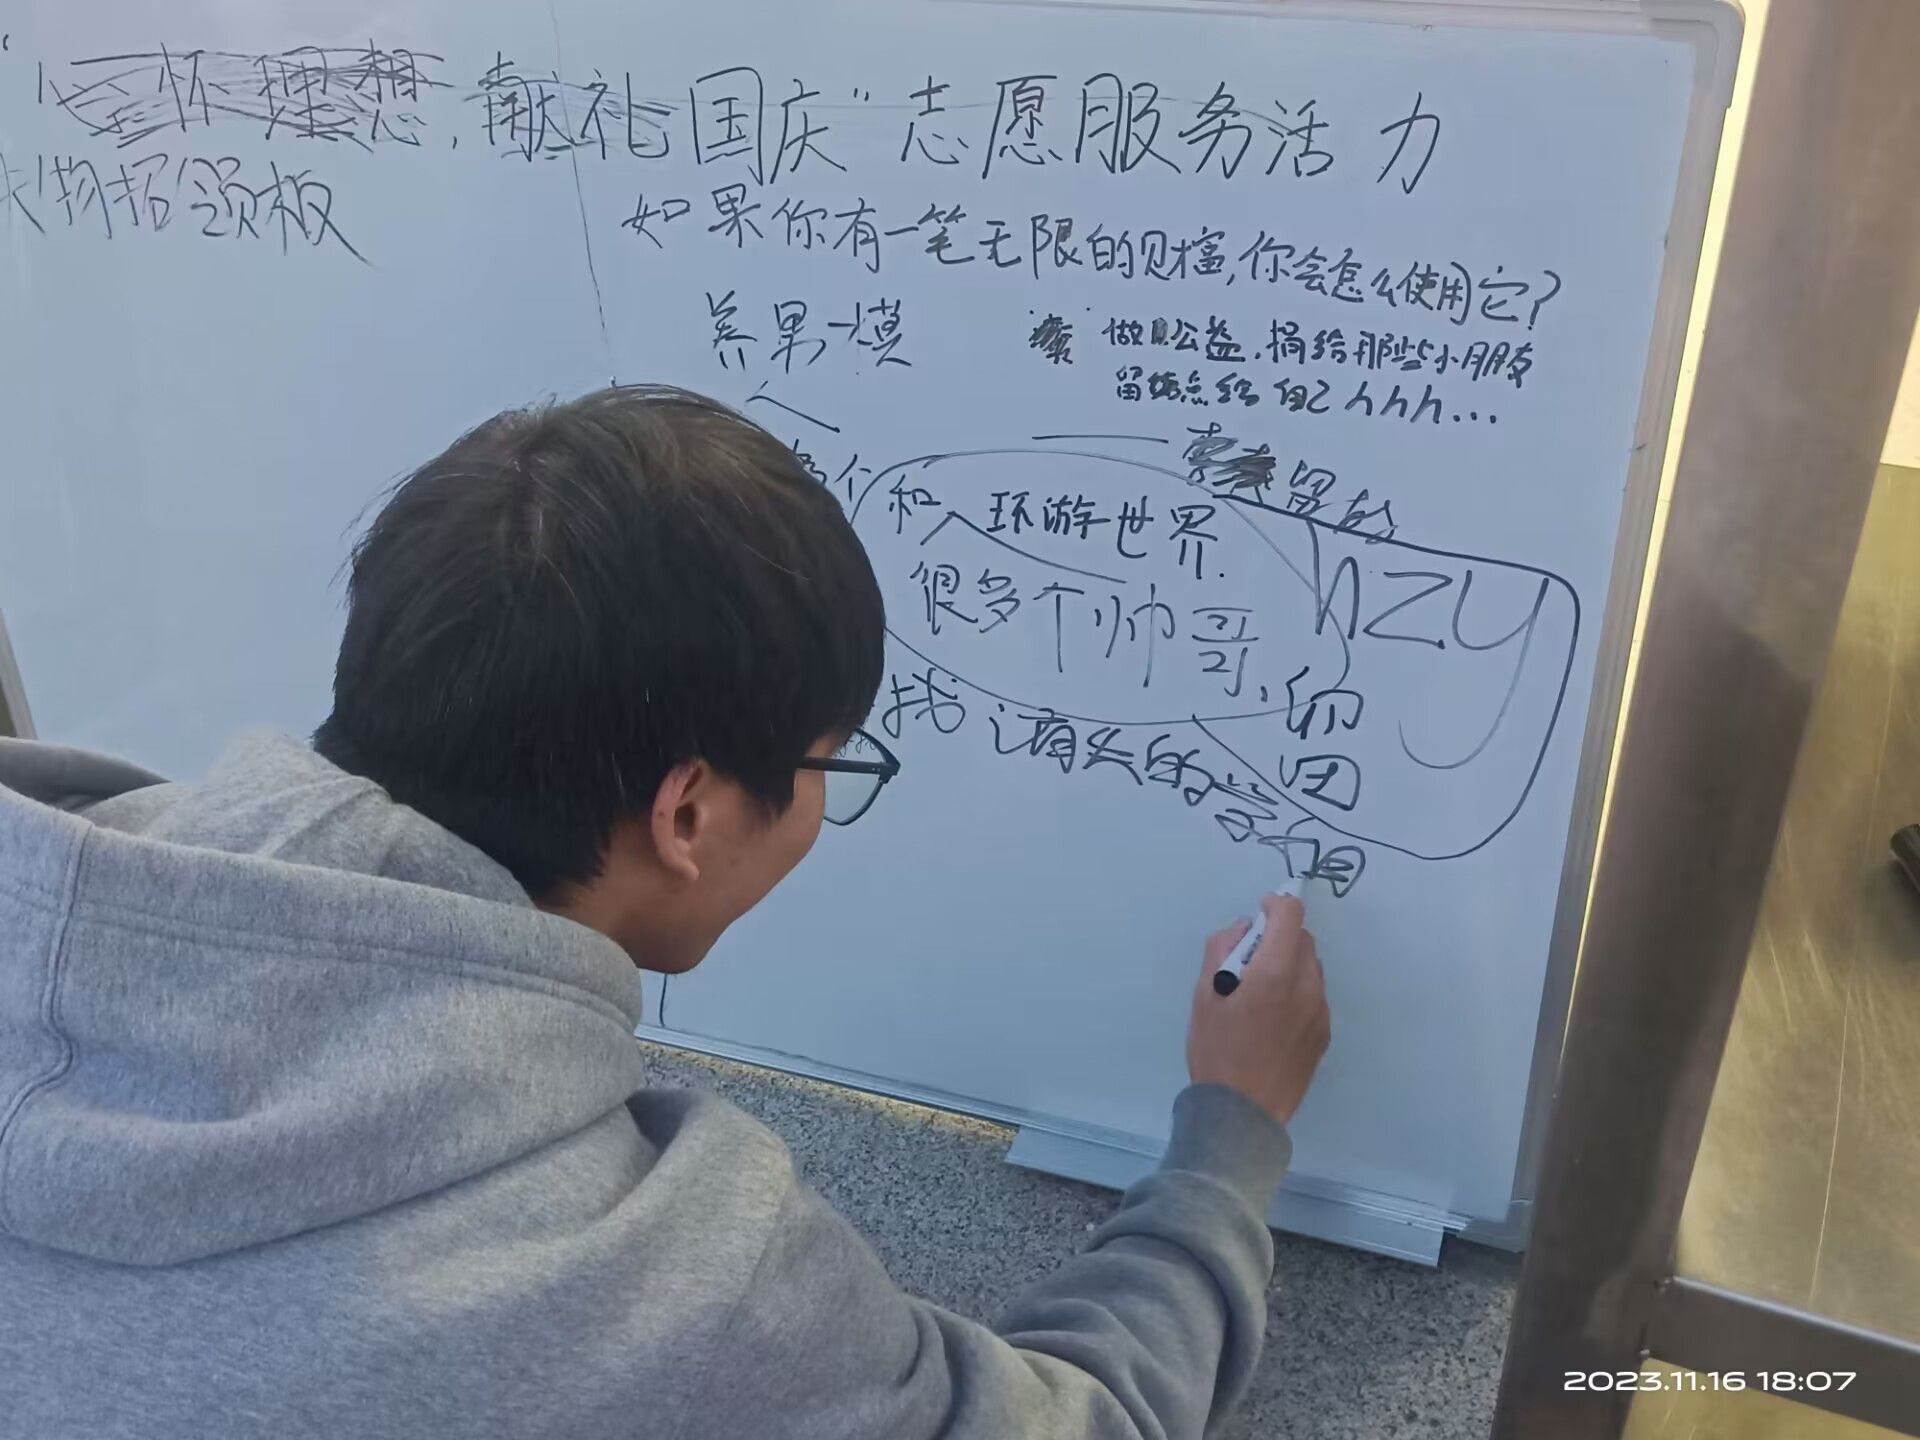 心怀理想，献礼国庆”志愿服务活力
失物招领板
如果你有一笔无限的财富，你会怎么使用它？
养男模
做公益，捐给那些小朋友
留点给自己hhh...
和
环游世界.
很多个帅哥、
hzy
卵
团
找
2023.11.16 18:07